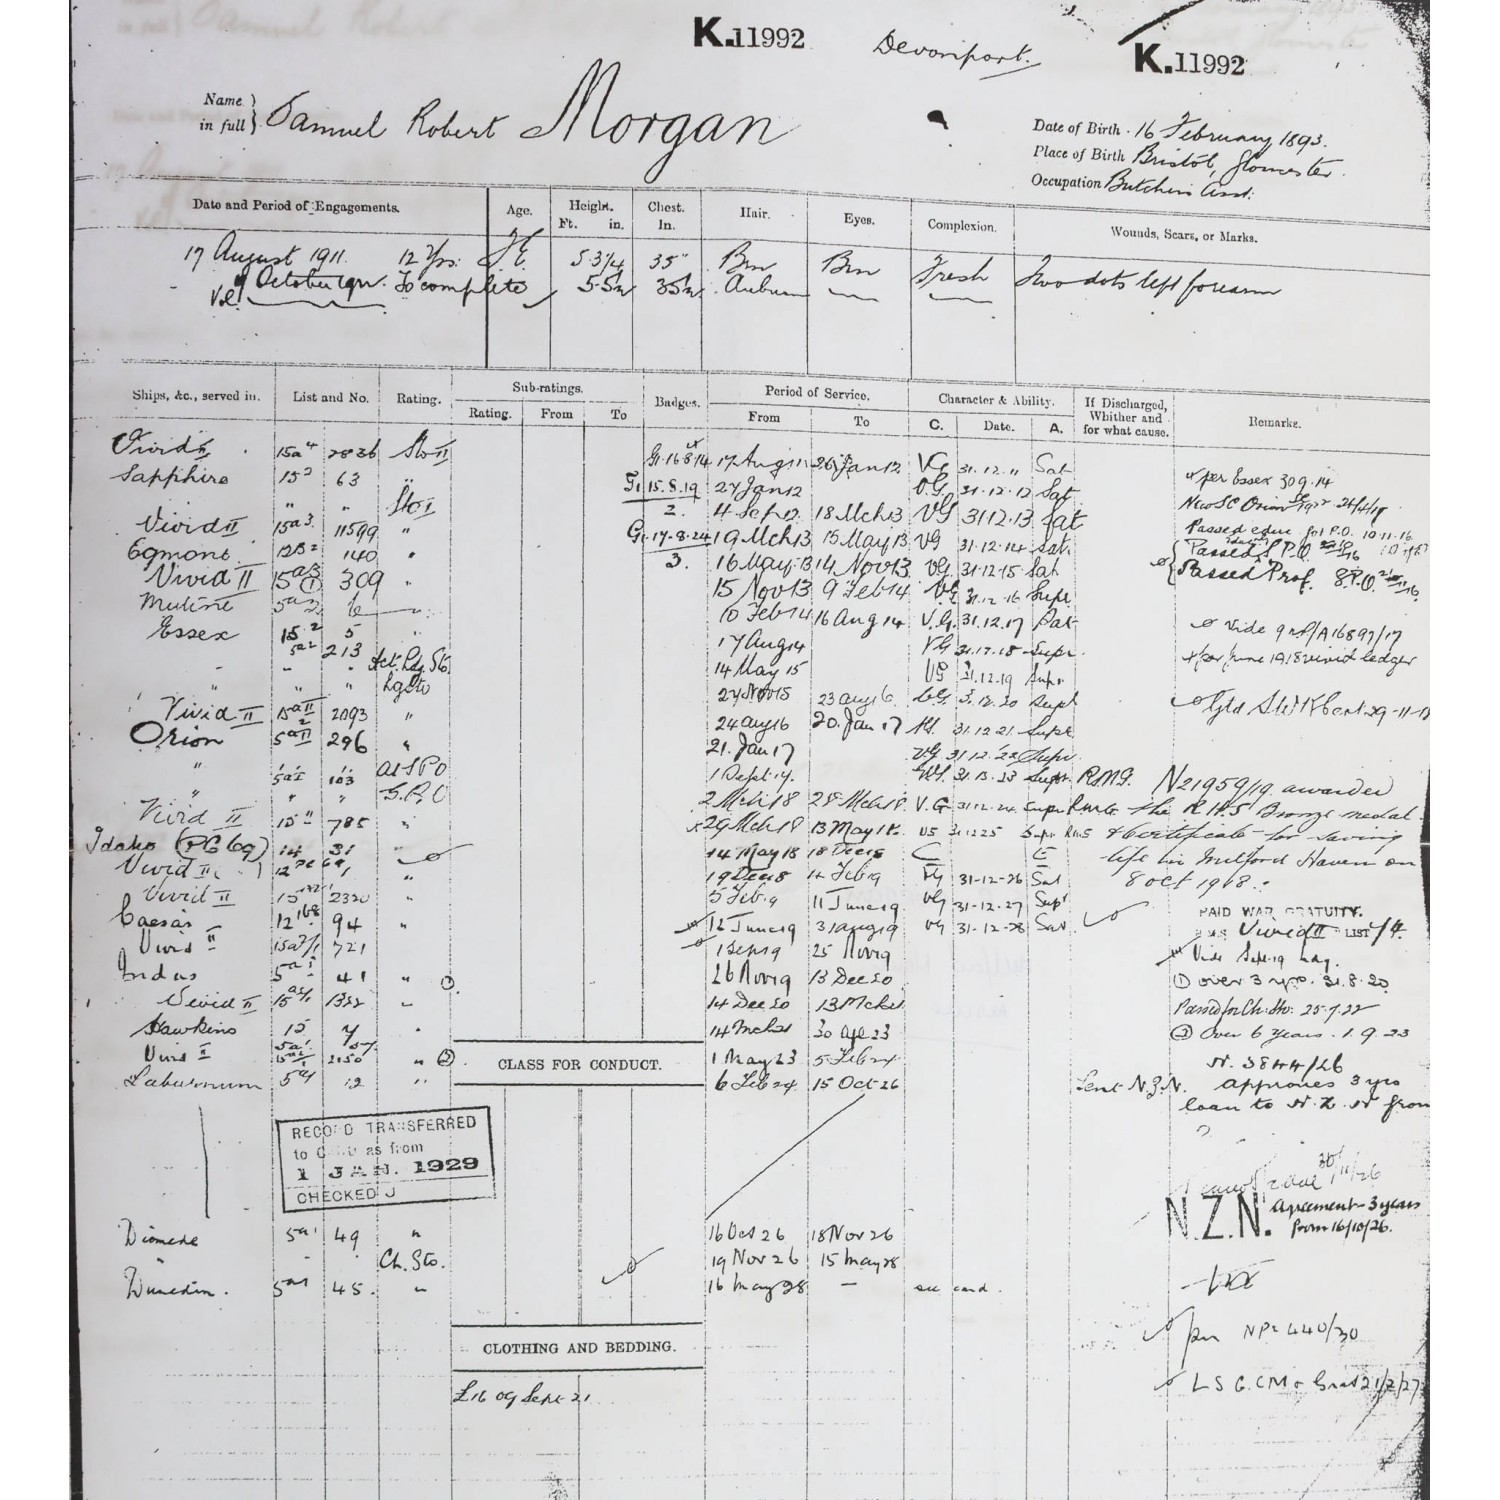 K.11992 Devonport. K.11992
Name in full } Samuel Robert Morgan
Date of Birth 16 February 1893.
Place of Birth Bristol, Gloucester.
Occupation Butchers Asst.
Date and Period of Engagements. Age. Height. Ft. in. Chest. In. Hair. Eyes. Complexion. Wounds, Scars, or Marks.
17 August 1911. 12 Yrs. 5. 3 1/4 35" Brn Brn Fresh Two dots left forearm
October To complete 5. 5 1/2 35 1/2 Auburn
Vol.
Ships, &c., served in. List and No. Rating. Sub-ratings. Rating. From To Badges. Period of Service. From To Character & Ability. C. Date. A. If Discharged, Whither and for what cause. Remarks.
Vivid II 15a4 2836 Sto II G1.16.8.14 17 Aug 11 26 Jan 12 VG 31.12.11 Sat
Sapphire 15 2 63 " 15.8.19 27 Jan 12 V.G. 31.12.12 Sat per Essex 30 9.14
" " " Sto I 2. 4 Sep 12 18 Mch 13 VG 31.12.13 Sat New SC Orion
Vivid II 15a3 11599 " G1.17.8.24 19 Mch 13 15 May 13 VG 31.12.14 Sat. Passed educ. for P.O. 10.11.16
Egmont 12B2 140 " 3. 16 May 13 14 Nov 13 VG 31.12.15 Sat Passed S.P.O.
Vivid II 15a3 309 " 15 Nov 13 9 Feb 14 VG 31.12.16 Supr Passed Prof. S.P.O.
Mutine 5a2 6 " 10 Feb 14 16 Aug 14 V.G. 31.12.17 Sat
Essex 15 2 5 " 17 Aug 14 VG 31.12.18 Supr Vide 9 16897/17
5a2 213 Act. Ldg. Sto. 14 May 15 VG 31.12.19 Supr for June 1918 Vivid ledger
" " " Lg Sto 27 Nov 15 23 Aug 16 VG. 31.12.20 Supr
Vivid II 15aII 2093 " 24 Aug 16 20. Jan 17 VG. 31.12.21 Supr
Orion 5aII 296 " 21. Jan 17 VG 31.12.22 Supr
" 5a1 103 a/S P O 1 Sept 17. VG. 31.12.23 Supr. R.M.G. N21959/19 awarded
" " " S.P.O 2 Mch 18 28 Mch 18 V.G 31.12.24 Supr RMG the R.H.S Bronze medal
Vivid II 15" 785 " 29 Mch 18 13 May 18. VG 31.12.25 Supr RMG & Certificate for saving
Idaho (PC 69) 14 31 14 May 18 18 Dec 18 C E life in Milford Haven on
Vivid II 19 Dec 18 4 Feb 19 VG 31-12-26 Sat 8 Oct 1918.
Vivid II 15 2320 " 5 Feb. 9 11 June 19 VG 31-12-27 Supr
Caesar 12 168 94 " 12 June 19 31 Aug 19 VG 31-12-28 Sat PAID WAR GRATUITY.
H.M.S Vivid II LIST /4.
Vivid II 721 1 Sep 19 25 Nov 19 Vide Sept. 19 ldg.
Indus 5a1 41 " 26 Nov 19 13 Dec 20 (1) over 3 yrs. 31.8.20
Vivid II 1322 14 Dec 20 13 Mch 21 Passed for Ch. Sto. 25.7.22
Hawkins 15 7 14 Mch 21 30 Apl 23 (2) Over 6 years. 1.9.23
Vivid I 2150 " (2) CLASS FOR CONDUCT. 1 May 23 5 Feb 24 N. 3844/26
Laburnum 5a1 12 " 6 Feb 24. 15 Oct 26 Lent N.Z.N. approves 3 yrs
loan to N.Z.N from
RECORD TRANSFERRED
to as from
1 JAN. 1929
CHECKED J
30/11/26
N.Z.N. Agreement-3 years
from 16/10/26.
Diomede 5a1 49 " 16 Oct 26 18 Nov 26
" Ch. Sto. 19 Nov 26 15 May 28
Dunedin. 5a1 45. " 16 May 28 — see card.
CLOTHING AND BEDDING.
per NP 2 440/30
£16 09 Sept. 21
L S G. C M & Grat 21/2/27